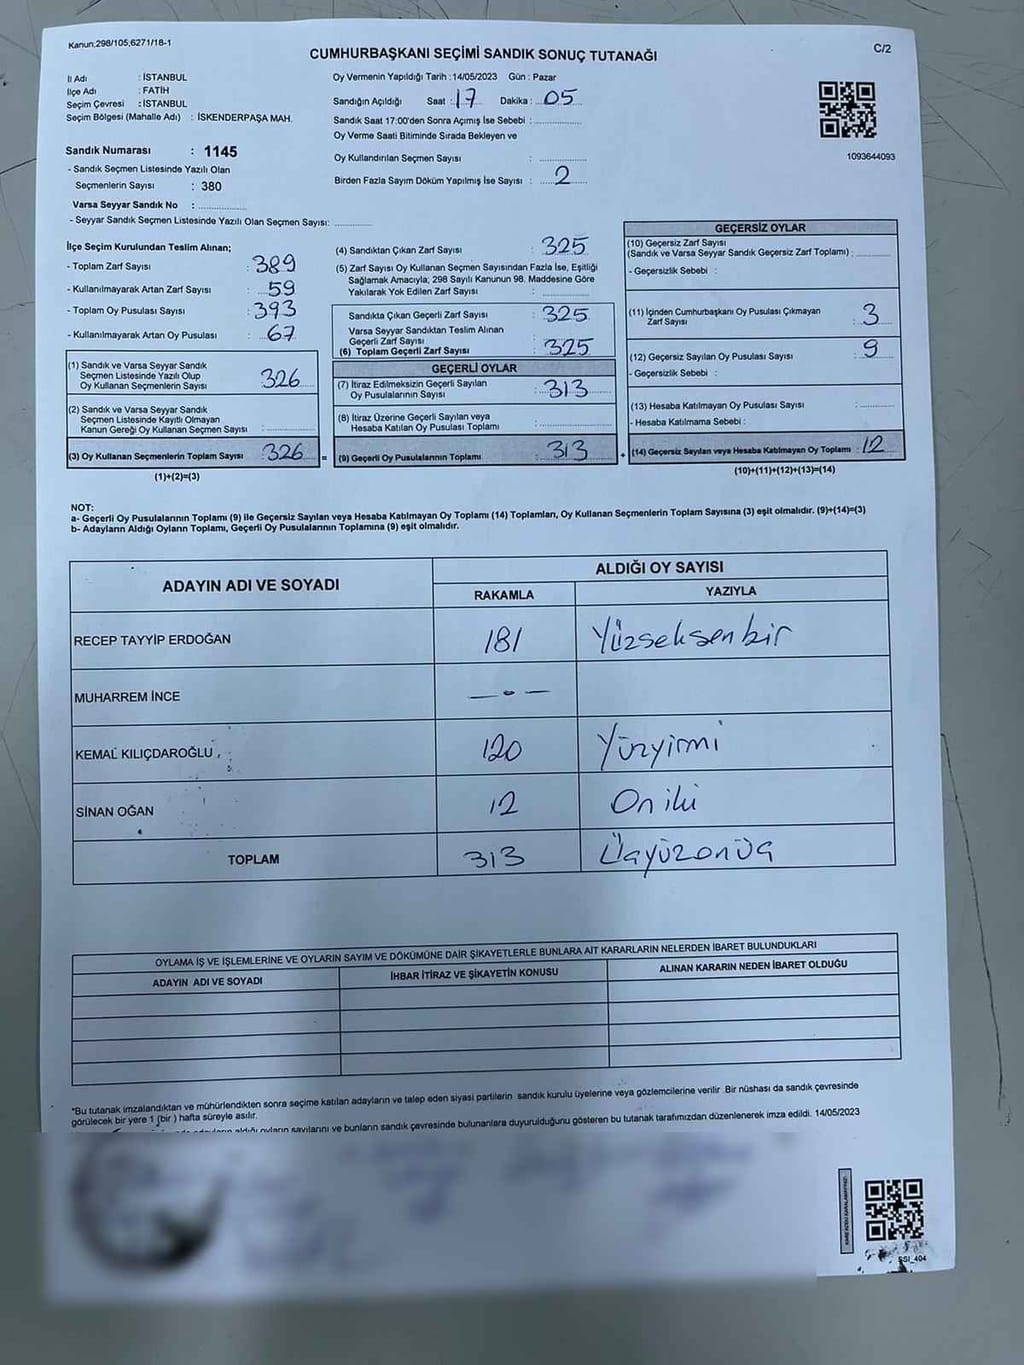 Kanun:298/105;6271/18-1
C/2
CUMHURBAŞKANI SEÇİMİ SANDIK SONUÇ TUTANAĞI
İl Adı : İSTANBUL
İlçe Adı : FATİH
Seçim Çevresi : İSTANBUL
Seçim Bölgesi (Mahalle Adı) : İSKENDERPAŞA MAH.
Sandık Numarası : 1145
- Sandık Seçmen Listesinde Yazılı Olan
Seçmenlerin Sayısı : 380
Varsa Seyyar Sandık No :
- Seyyar Sandık Seçmen Listesinde Yazılı Olan Seçmen Sayısı:
Oy Vermenin Yapıldığı Tarih : 14/05/2023 Gün : Pazar
Sandığın Açıldığı Saat : 17 Dakika : 05
Sandık Saat 17:00'den Sonra Açımış İse Sebebi :
Oy Verme Saati Bitiminde Sırada Bekleyen ve
Oy Kullandırılan Seçmen Sayısı :
Birden Fazla Sayım Döküm Yapılmış İse Sayısı : 2
1093644093
İlçe Seçim Kurulundan Teslim Alınan;
- Toplam Zarf Sayısı : 389
- Kullanılmayarak Artan Zarf Sayısı : 59
- Toplam Oy Pusulası Sayısı : 393
- Kullanılmayarak Artan Oy Pusulası : 67
(1) Sandık ve Varsa Seyyar Sandık
Seçmen Listesinde Yazılı Olup
Oy Kullanan Seçmenlerin Sayısı : 326
(2) Sandık ve Varsa Seyyar Sandık
Seçmen Listesinde Kayıtlı Olmayan
Kanun Gereği Oy Kullanan Seçmen Sayısı :
(3) Oy Kullanan Seçmenlerin Toplam Sayısı : 326 =
(1)+(2)=(3)
(4) Sandıktan Çıkan Zarf Sayısı : 325
(5) Zarf Sayısı Oy Kullanan Seçmen Sayısından Fazla İse, Eşitliği
Sağlamak Amacıyla; 298 Sayılı Kanunun 98. Maddesine Göre
Yakılarak Yok Edilen Zarf Sayısı :
Sandıkta Çıkan Geçerli Zarf Sayısı : 325
Varsa Seyyar Sandıktan Teslim Alınan
Geçerli Zarf Sayısı :
(6) Toplam Geçerli Zarf Sayısı : 325
GEÇERLİ OYLAR
(7) İtiraz Edilmeksizin Geçerli Sayılan
Oy Pusulalarının Sayısı : 313
(8) İtiraz Üzerine Geçerli Sayılan veya
Hesaba Katılan Oy Pusulası Toplamı :
(9) Geçerli Oy Pusulalarının Toplamı : 313 +
GEÇERSİZ OYLAR
(10) Geçersiz Zarf Sayısı
(Sandık ve Varsa Seyyar Sandık Geçersiz Zarf Toplamı) :
- Geçersizlik Sebebi :
(11) İçinden Cumhurbaşkanı Oy Pusulası Çıkmayan
Zarf Sayısı : 3
(12) Geçersiz Sayılan Oy Pusulası Sayısı : 9
- Geçersizlik Sebebi :
(13) Hesaba Katılmayan Oy Pusulası Sayısı :
- Hesaba Katılmama Sebebi :
(14) Geçersiz Sayılan veya Hesaba Katılmayan Oy Toplamı : 12
(10)+(11)+(12)+(13)=(14)
NOT:
a- Geçerli Oy Pusulalarının Toplamı (9) ile Geçersiz Sayılan veya Hesaba Katılmayan Oy Toplamı (14) Toplamları, Oy Kullanan Seçmenlerin Toplam Sayısına (3) eşit olmalıdır. (9)+(14)=(3)
b- Adayların Aldığı Oyların Toplamı, Geçerli Oy Pusulalarının Toplamına (9) eşit olmalıdır.
ADAYIN ADI VE SOYADI ALDIĞI OY SAYISI
RAKAMLA YAZIYLA
RECEP TAYYİP ERDOĞAN 181 Yüzseksenbir
MUHARREM İNCE — • —
KEMAL KILIÇDAROĞLU 120 Yüzyirmi
SİNAN OĞAN 12 On iki
TOPLAM 313 Üçyüzonüç
OYLAMA İŞ VE İŞLEMLERİNE VE OYLARIN SAYIM VE DÖKÜMÜNE DAİR ŞİKAYETLERLE BUNLARA AİT KARARLARIN NELERDEN İBARET BULUNDUKLARI
ADAYIN ADI VE SOYADI İHBAR İTİRAZ VE ŞİKAYETİN KONUSU ALINAN KARARIN NEDEN İBARET OLDUĞU
*Bu tutanak imzalandıktan ve mühürlendikten sonra seçime katılan adayların ve talep eden siyasi partilerin sandık kurulu üyelerine veya gözlemcilerine verilir .Bir nüshası da sandık çevresinde
görülecek bir yere 1 (bir ) hafta süreyle asılır.
aldığı oyların sayılarını ve bunların sandık çevresinde bulunanlara duyurulduğunu gösteren bu tutanak tarafımızdan düzenlenerek imza edildi. 14/05/2023
SSI_404